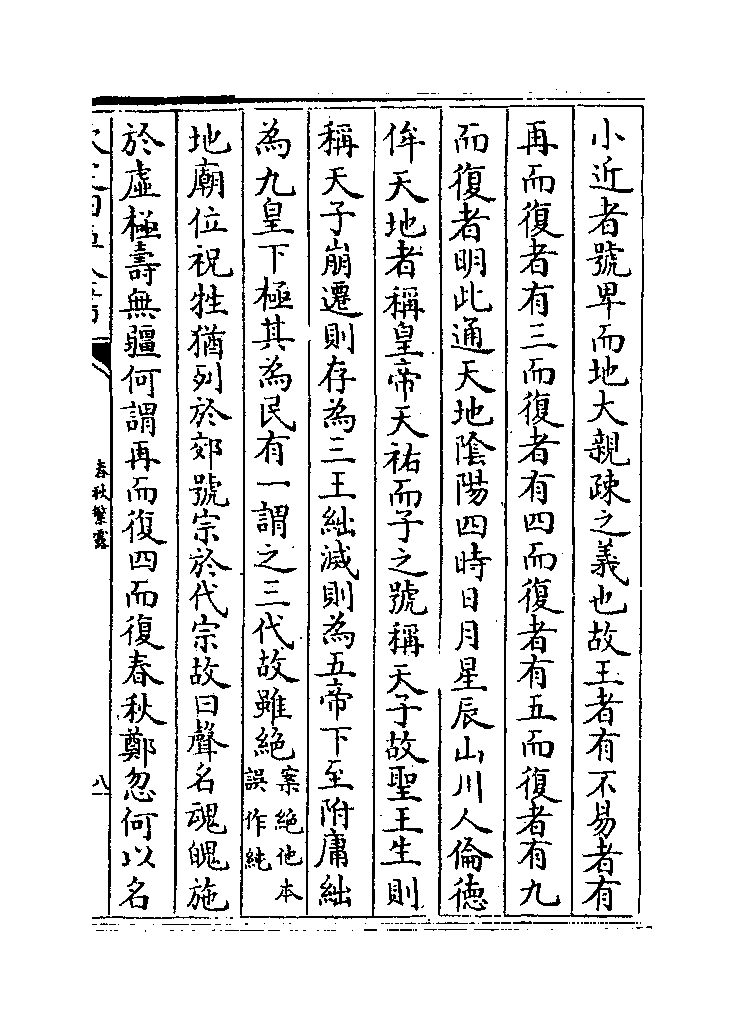 小近者號卑而地大親疎之義也故王者有不易者有
再而復者有三而復者有四而復者有五而復者有九
而復者明此通天地隂陽四時日月星辰山川人倫徳
侔天地者稱皇帝天祐而子之號稱天子故聖王生則
稱天子崩遷則存為三王絀滅則為五帝下至附庸絀
為九皇下極其為民有一謂之三代故雖絶案絶他本誤作純
地廟位祝牲猶列於郊號宗於代宗故曰聲名魂魄施
於虛極壽無疆何謂再而復四而復春秋鄭忽何以名
春秋繁露
八